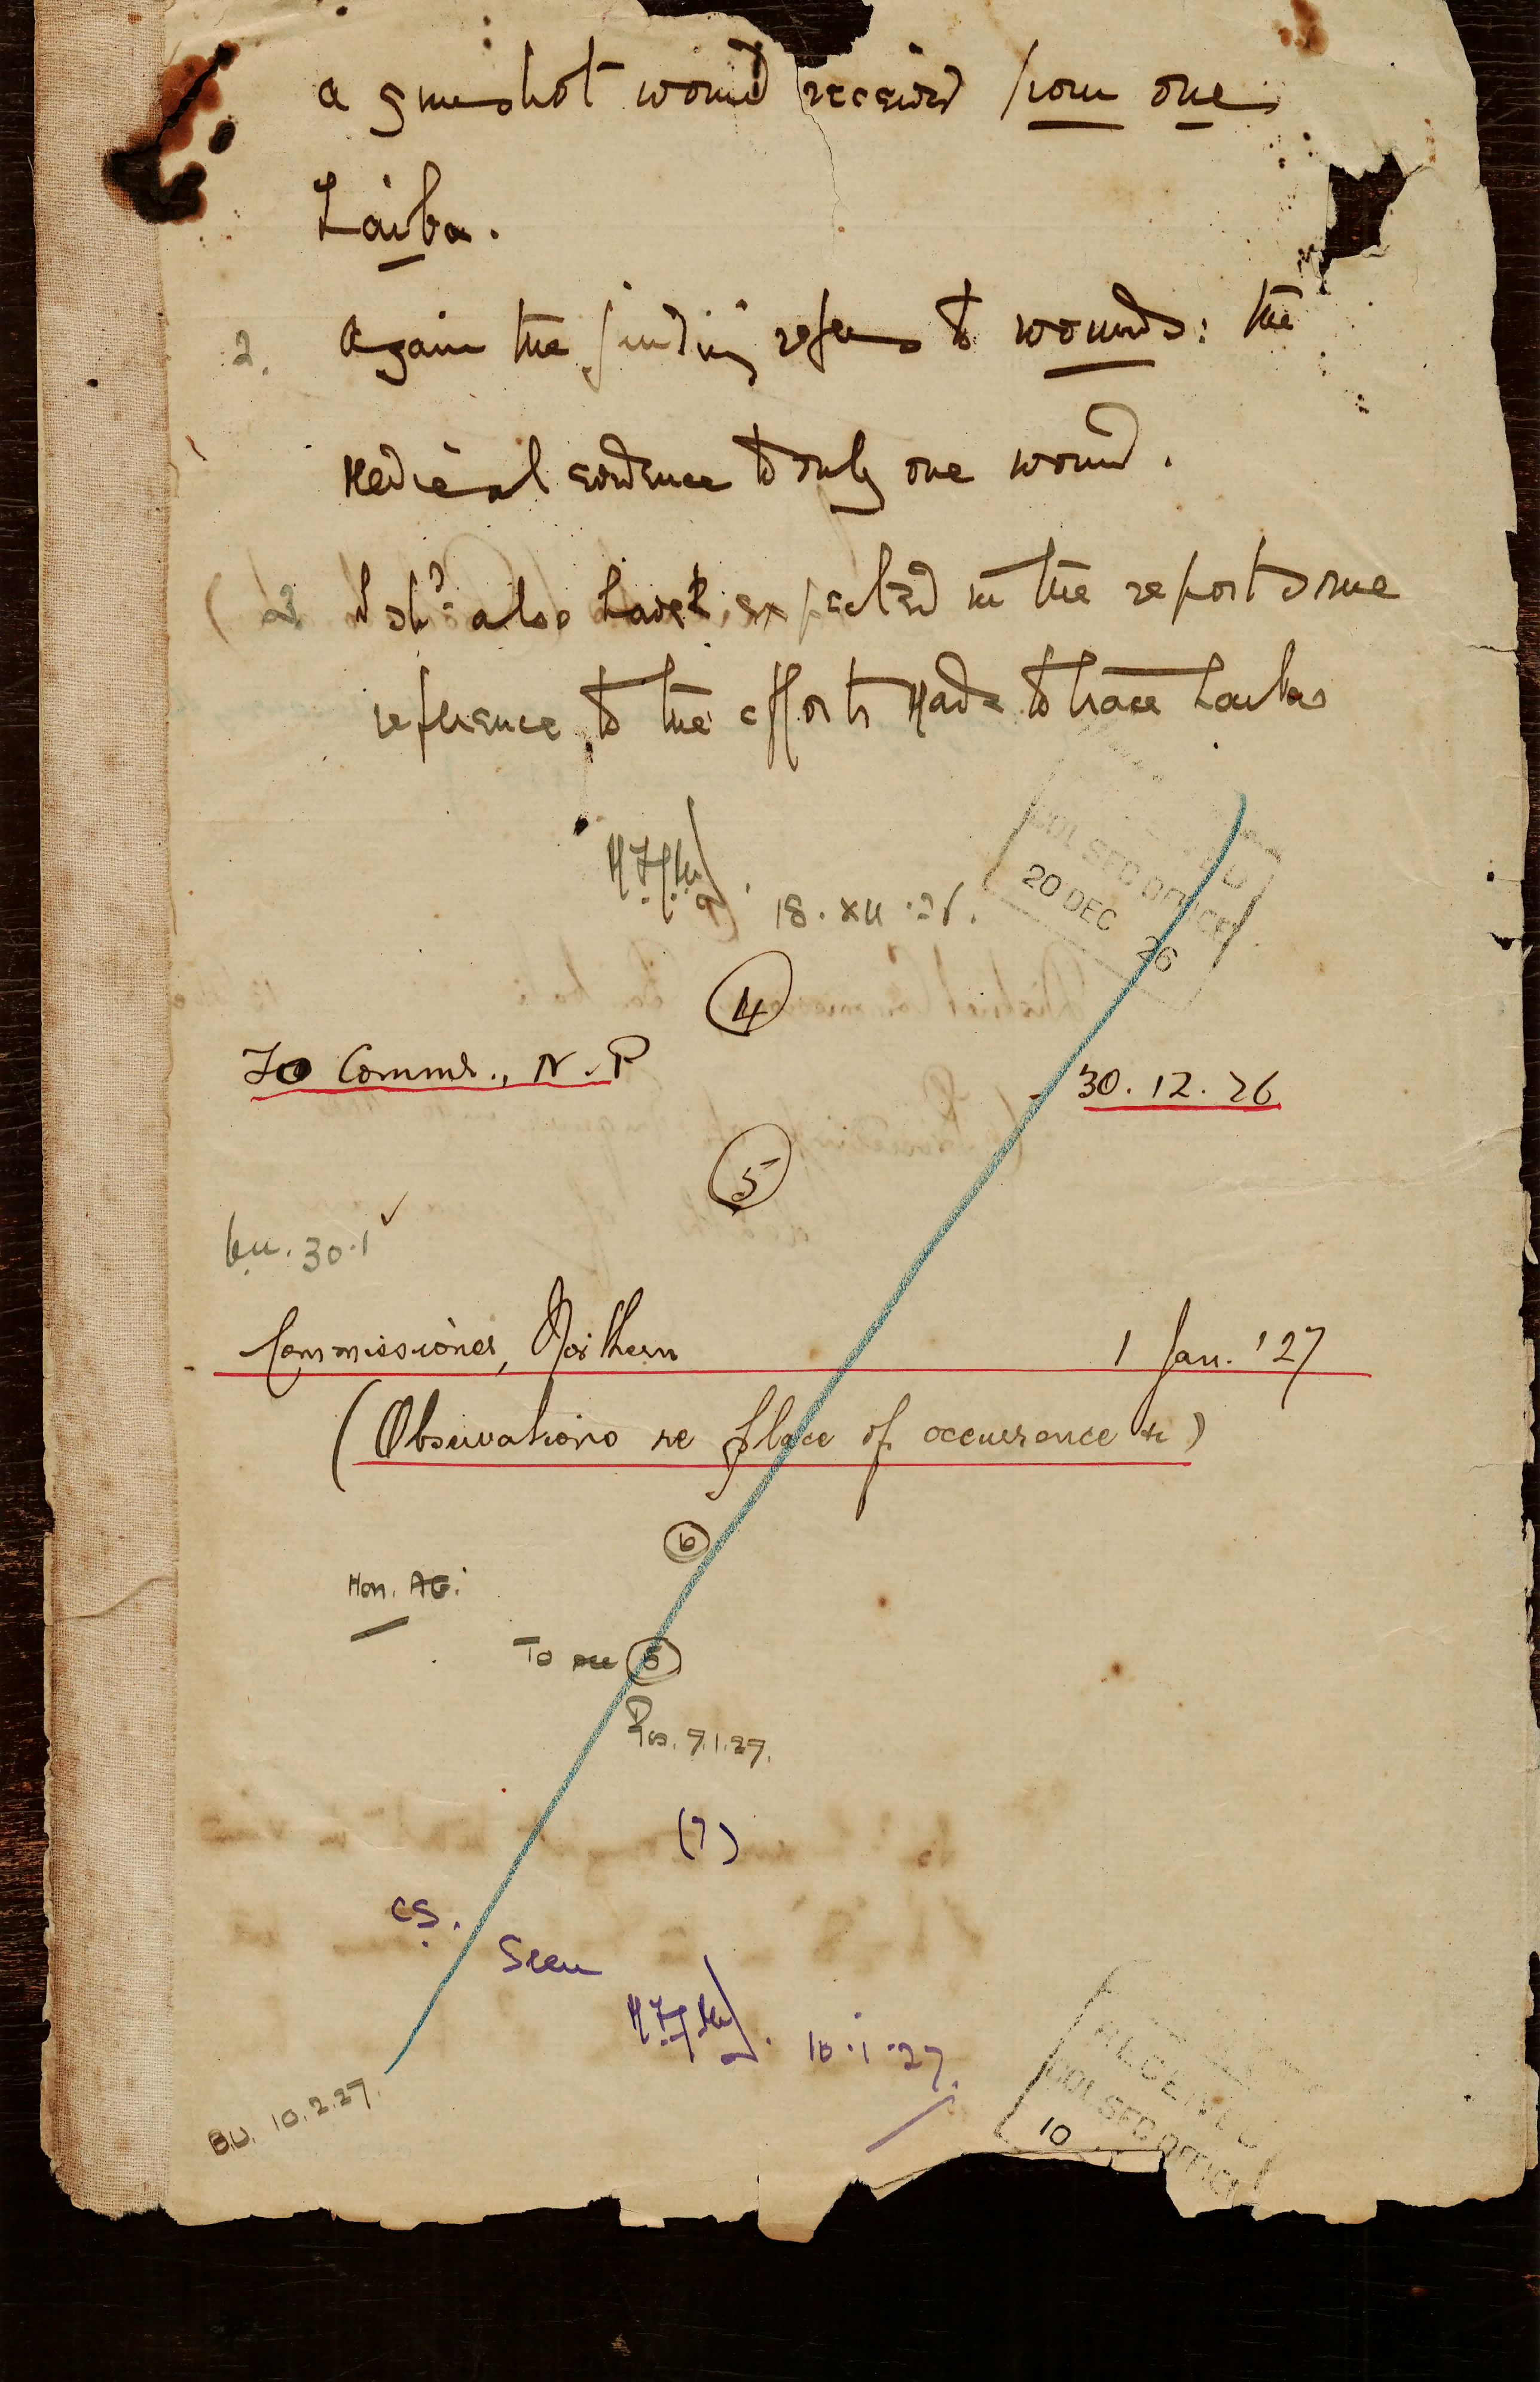 a gunshot wound received from one
Laiba.
2. Again the finding refers to wounds: the
Medical evidence to only one wound.
I shd also have expected in the report some
reference to the efforts made to trace Laiba
18.XII.26.
COL SEC OFFICE
20 DEC 26
4
To Commr., N.P 30.12.26
5
bu. 30.1
Commissioner, Northern 1 Jan. '27
(Observations re place of occurrence &c)
6
Hon. AG.
To see 6
7.1.27.
(7)
CS.
Seen
10.1.27.
B.U. 10.2.27.
RECEIVED
COL SEC OFFICE
10